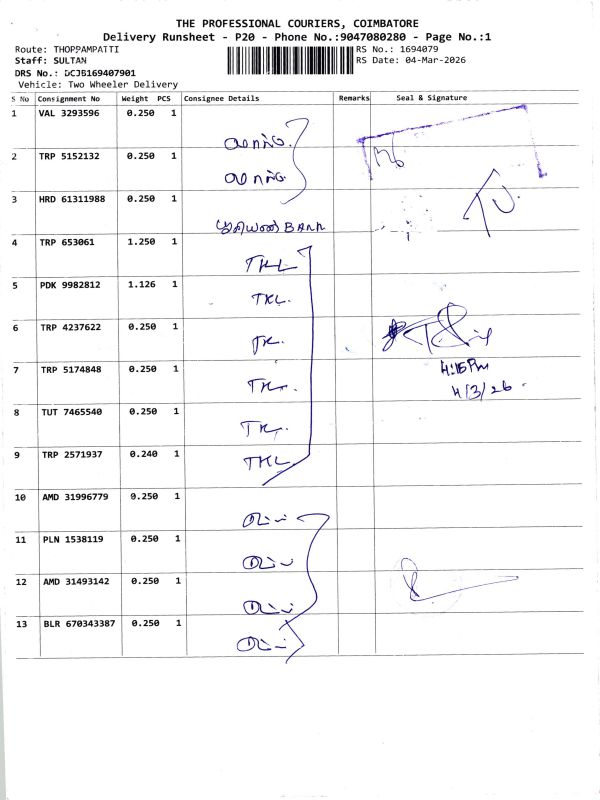 THE PROFESSIONAL COURIERS, COIMBATORE
Delivery Runsheet - P20 - Phone No.:9047080280 - Page No.:1
Route: THOPPAMPATTI RS No.: 1694079
Staff: SULTAN RS Date: 04-Mar-2026
DRS No.: DCJB169407901
Vehicle: Two Wheeler Delivery
S No Consignment No Weight PCS Consignee Details Remarks Seal & Signature
1 VAL 3293596 0.250 1
2 TRP 5152132 0.250 1
3 HRD 61311988 0.250 1
BANK
4 TRP 653061 1.250 1
TKL
5 PDK 9982812 1.126 1
TKL.
6 TRP 4237622 0.250 1
7 TRP 5174848 0.250 1
4:15 Pm
4/3/26
8 TUT 7465540 0.250 1
9 TRP 2571937 0.240 1
TKL
10 AMD 31996779 0.250 1
11 PLN 1538119 0.250 1
12 AMD 31493142 0.250 1
13 BLR 670343387 0.250 1